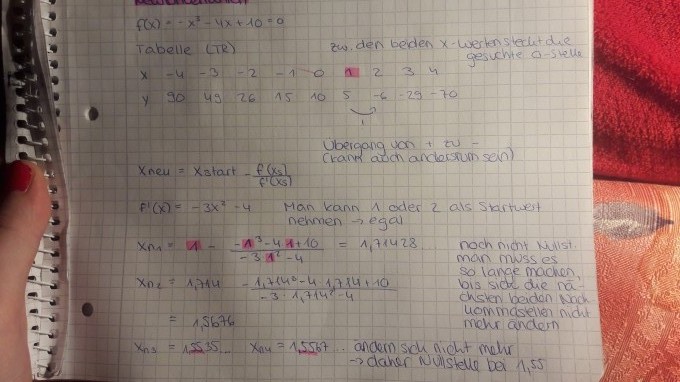 f(x) = -x³ - 4x + 10 = 0
Tabelle (TR)
zw. den beiden x-Werten steckt die
gesuchte 0-stelle
x -4 -3 -2 -1 0 1 2 3 4
y 90 49 26 15 10 5 -6 -29 -70
Übergang von + zu -
(kann auch andersrum sein)
Xneu = Xstart - f(xs)/f'(xs)
f'(x) = -3x² - 4
Man kann 1 oder 2 als Startwert
nehmen → egal
Xn1 = 1 - (-1³ - 4·1 + 10)/(-3·1² - 4) = 1,71428
noch nicht Nullst.
man muss es
so lange machen,
bis sich die nä-
chsten beiden Nach-
kommastellen nicht
mehr ändern
Xn2 = 1,714 - (-1,714³ - 4·1,714 + 10)/(-3·1,714² - 4)
= 1,5676
Xn3 = 1,5535... Xn4 = 1,5567... ändern sich nicht mehr
→ daher Nullstelle bei 1,55